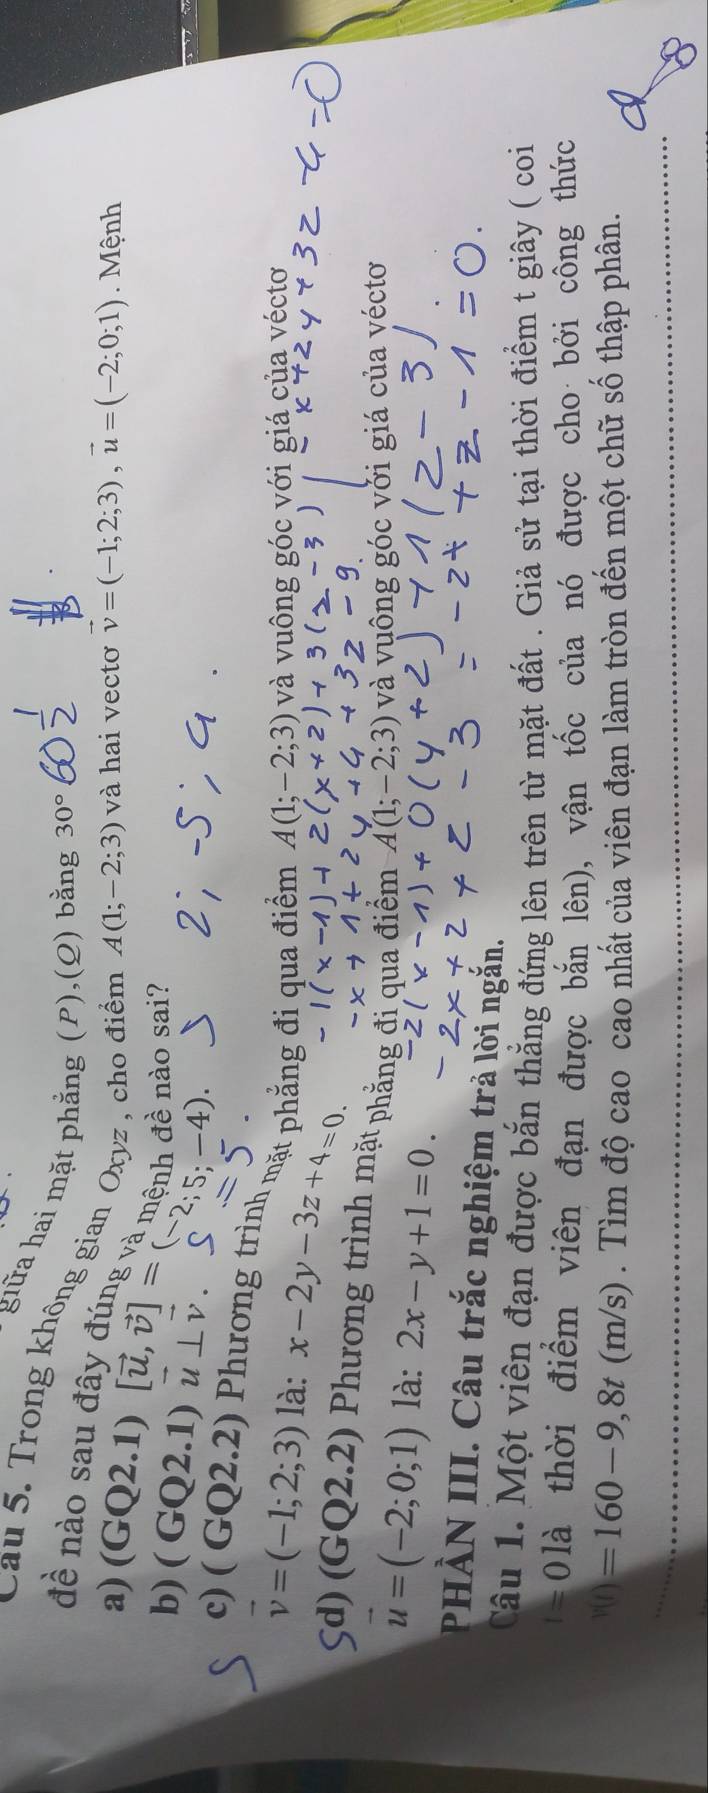 giữa hai mặt phẳng (P),(Q) bằng 30° 60 1/2
Câu 5. Trong không gian Oxyz, cho điểm A(1;−2;3) và hai vectơ v⃗ = (−1;2;3), u⃗ = (−2;0;1). Mệnh
đề nào sau đây đúng và mệnh đề nào sai?
a) (GQ2.1) [u⃗,v⃗] = (−2;5;−4). S 2; -5; 4.
b) ( GQ2.1) u⃗ ⊥ v⃗. S = 5.
S c) ( GQ2.2) Phương trình mặt phẳng đi qua điểm A(1;−2;3) và vuông góc với giá của véctơ
v⃗ = (−1;2;3) là: x − 2y − 3z + 4 = 0.
-1(x-1)+2(x+2)+3(2-3) | -x+2y+3z-4=0
-x+1+2y+4+3z-9.
S d) (GQ2.2) Phương trình mặt phẳng đi qua điểm A(1;−2;3) và vuông góc với giá của véctơ
u⃗ = (−2;0;1) là: 2x − y + 1 = 0.
-2(x-1)+0(y+2)+1(z-3)
-2x+2+z-3 = -2x+z-1=0.
PHẦN III. Câu trắc nghiệm trả lời ngắn.
Câu 1. Một viên đạn được bắn thẳng đứng lên trên từ mặt đất . Giả sử tại thời điểm t giây ( coi
t = 0 là thời điểm viên đạn được bắn lên), vận tốc của nó được cho bởi công thức
v(t) = 160 − 9,8t (m/s) . Tìm độ cao cao nhất của viên đạn làm tròn đến một chữ số thập phân.